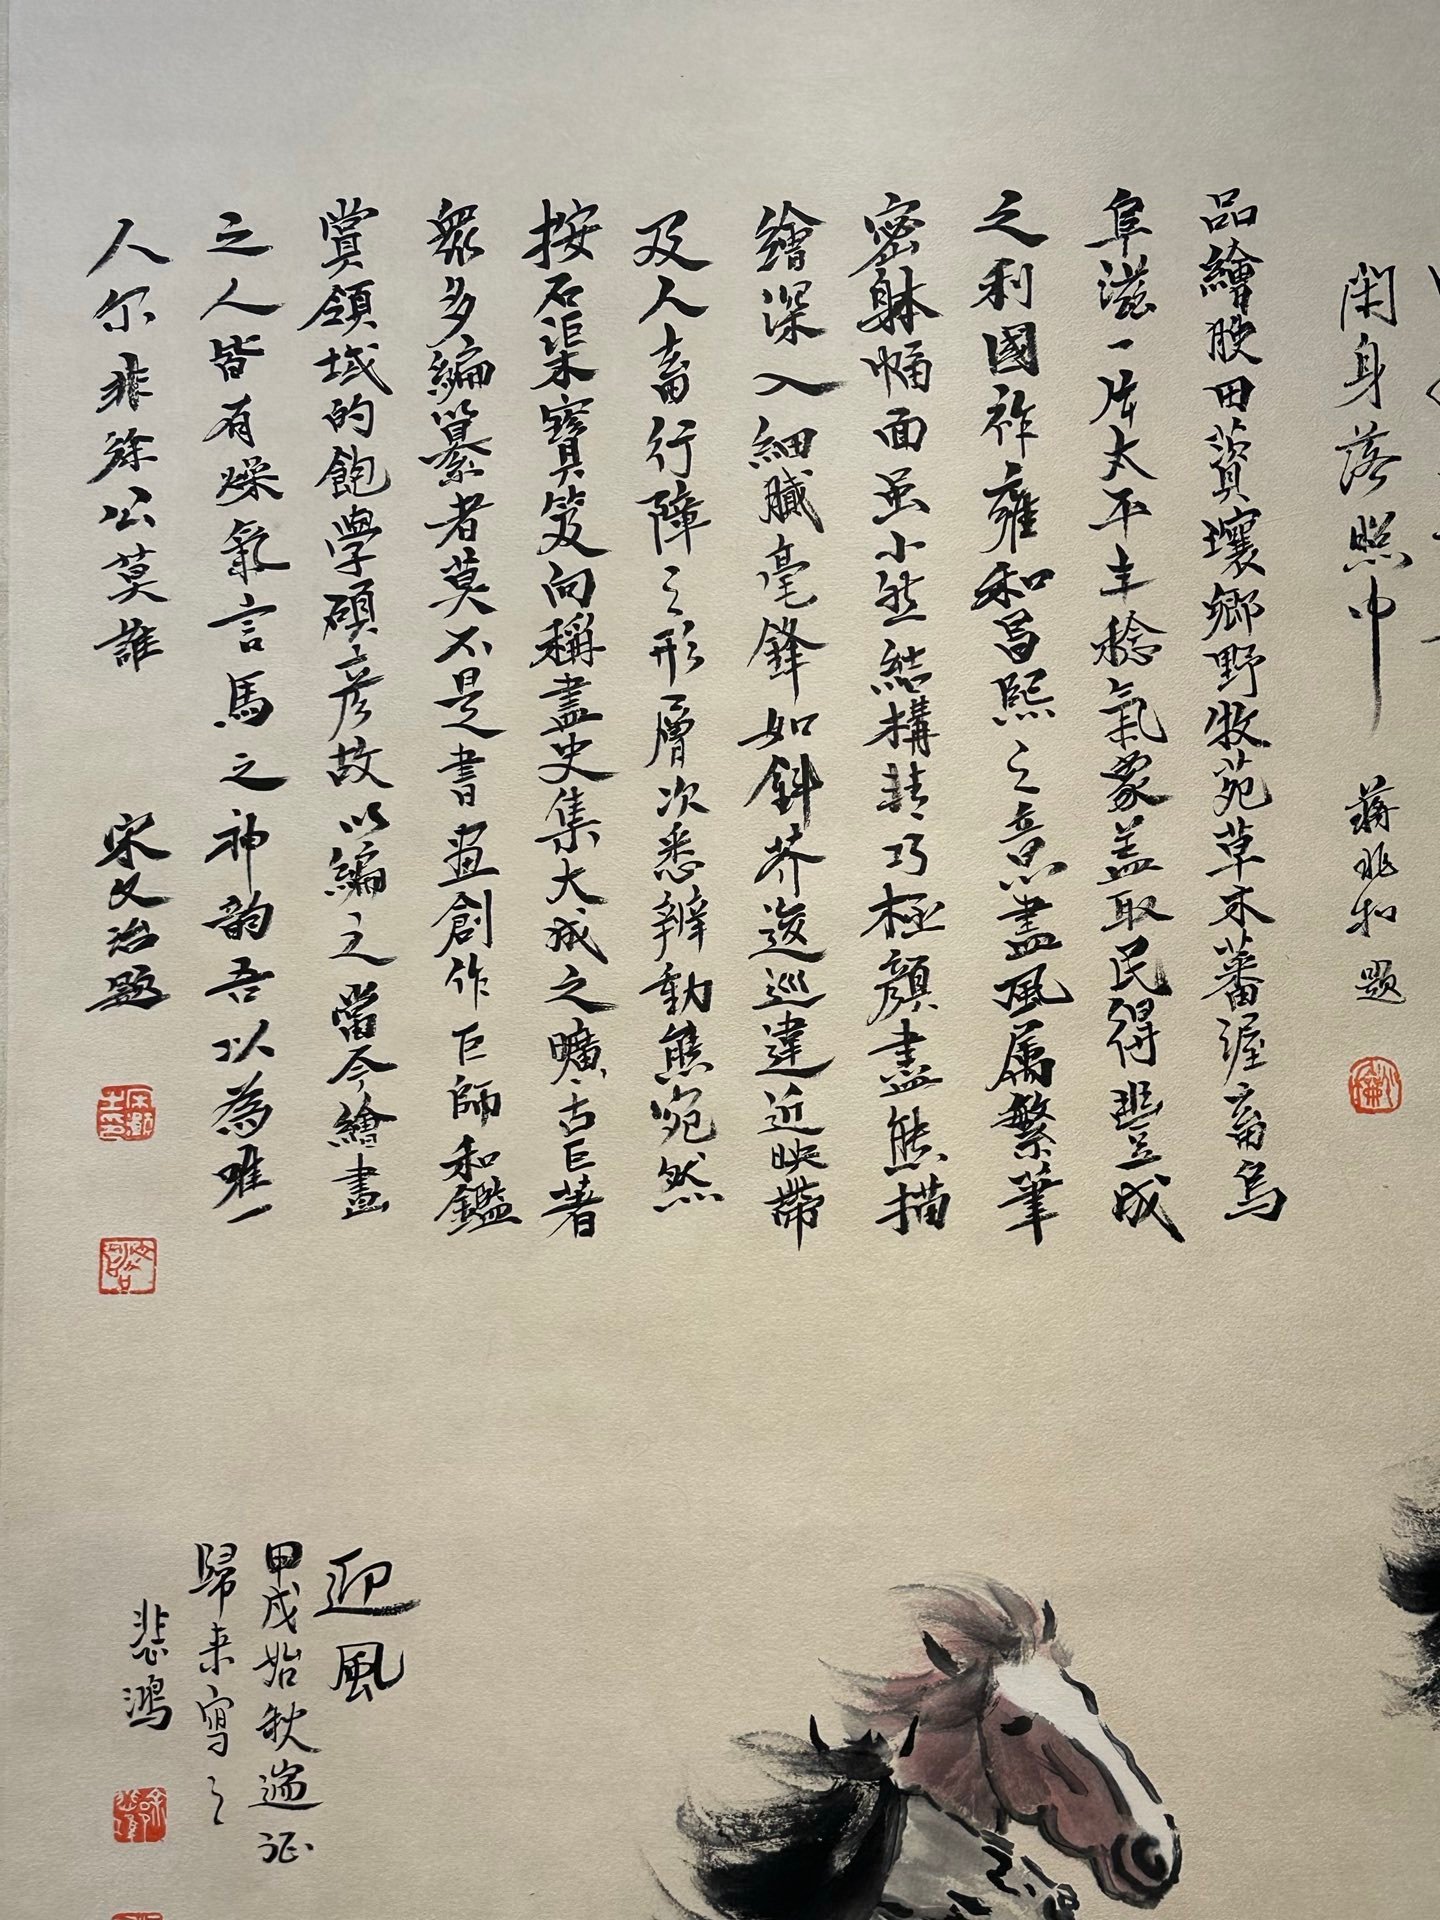 閑身落照中
蔣兆和題
品繪腴田蕡壤鄉野牧苑草木蕃渥畜鳥
阜滋一片太平丰稔氣象盖取民得豐成
之利國祚雍和昌熙之意盡風属繁筆
密躰幅面虽小然結構精巧極顔盡態描
繪深入細膩毫鋒如針芥逡巡違近映帶
及人畜行障之形層次悉辨動態宛然
按石渠寶笈向稱畫史集大成之曠古巨著
衆多編纂者莫不是書画創作巨師和鑑
賞領域的飽學碩彦故以編之當今繪畫
之人皆有燥氣言馬之神韵吾以為唯一
人尔非徐公莫誰
宋文治題
迎風
甲戍始秋遄征
歸来寫之
悲鴻